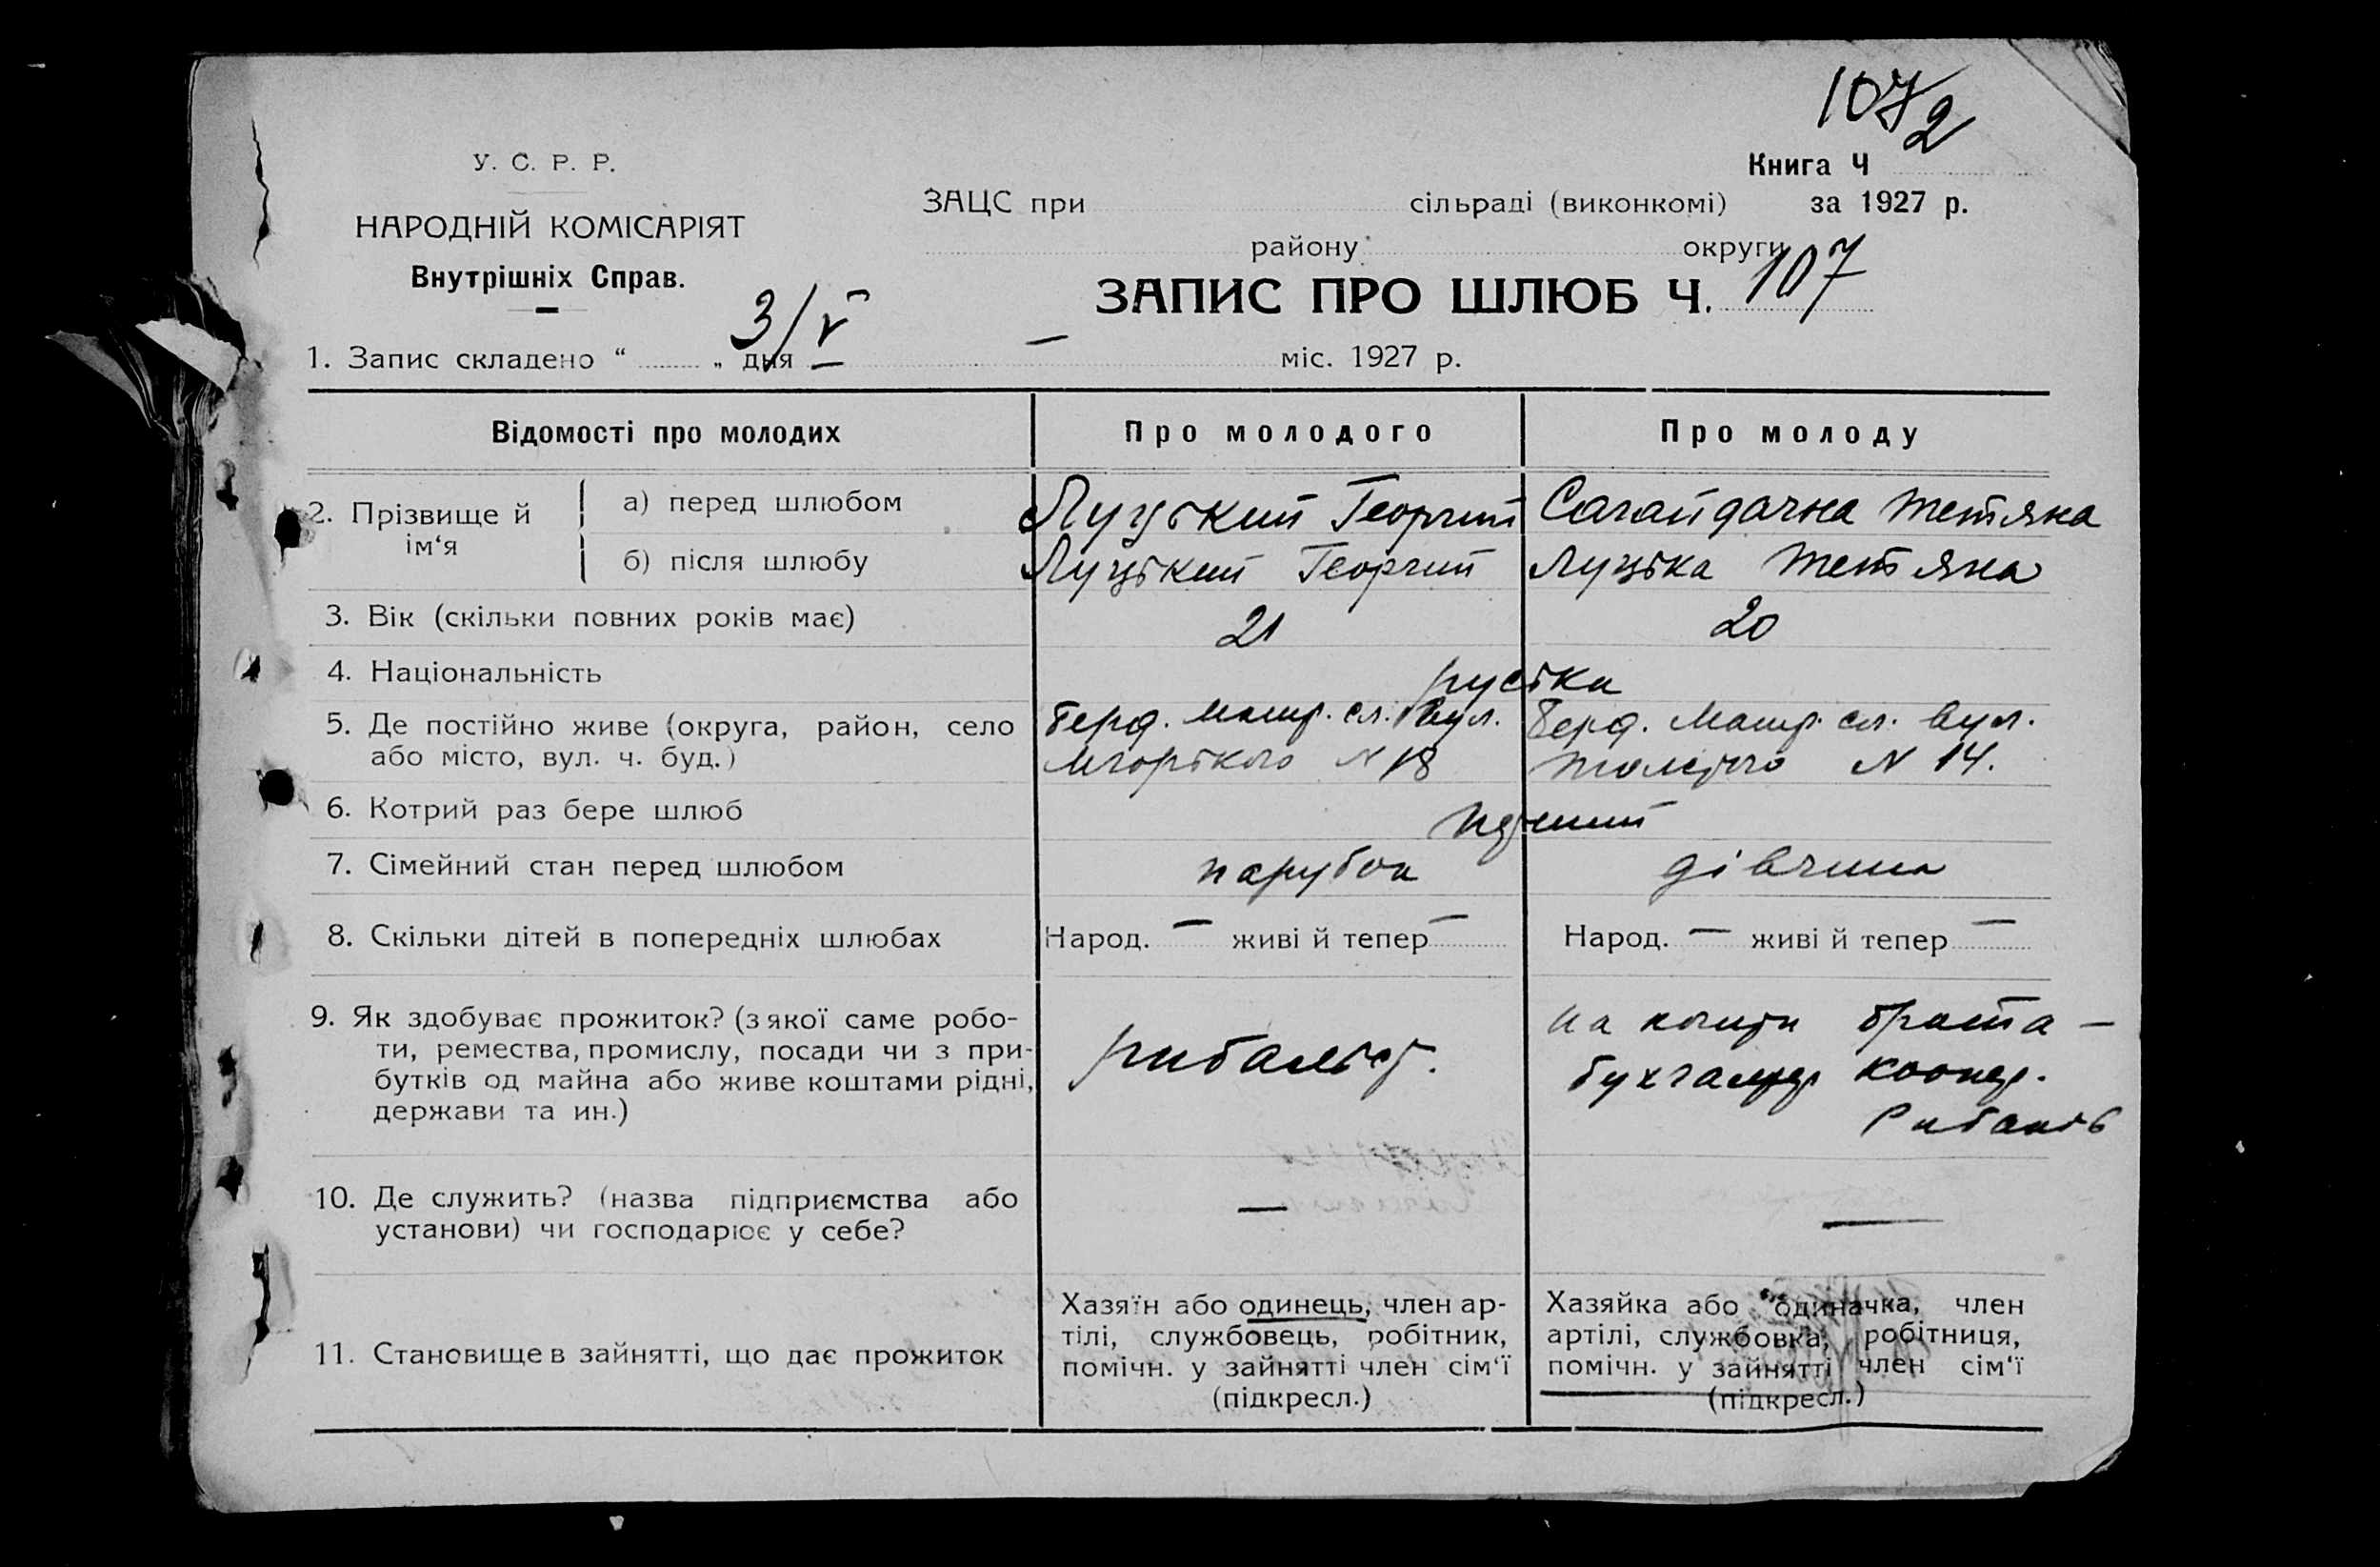 1072
У. С. Р. Р.
Книга Ч
ЗАЦС при сільраді (виконкомі) за 1927 р.
НАРОДНІЙ КОМІСАРІЯТ
району округи
Внутрішніх Справ.
ЗАПИС ПРО ШЛЮБ Ч. 107
1. Запис складено “ „ дня 3/V — міс. 1927 р.
Відомості про молодих Про молодого Про молоду
2. Прізвище й ім‘я
а) перед шлюбом Луцький Георгий Сагайдачна Тетяна
б) після шлюбу Луцький Георгий Луцька Тетяна
3. Вік (скільки повних років має) 21 20
4. Національність руська
5. Де постійно живе (округа, район, село
або місто, вул. ч. буд.)
Берд. Матр. сл. вул.
N 18
Берд. Матр. сл. вул.
N 14.
6. Котрий раз бере шлюб
7. Сімейний стан перед шлюбом парубок дівчина
8. Скільки дітей в попередніх шлюбах Народ. — живі й тепер — Народ. — живі й тепер —
9. Як здобуває прожиток? (з якої саме робо-
ти, ремества, промислу, посади чи з при-
бутків од майна або живе коштами рідні,
держави та ин.)
на кошти брата —
бухгалтер кооп.
10. Де служить? (назва підприємства або
установи) чи господарює у себе?
— —
11. Становище в зайнятті, що дає прожиток
Хазяїн або одинець, член ар-
тілі, службовець, робітник,
помічн. у зайнятті член сім‘ї
(підкресл.)
Хазяйка або одиначка, член
артілі, службовка, робітниця,
помічн. у зайнятті член сім‘ї
(підкресл.)